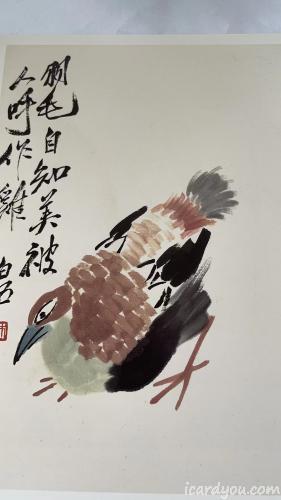 羽毛自知美被
人呼作雞
白石
icardyou.com